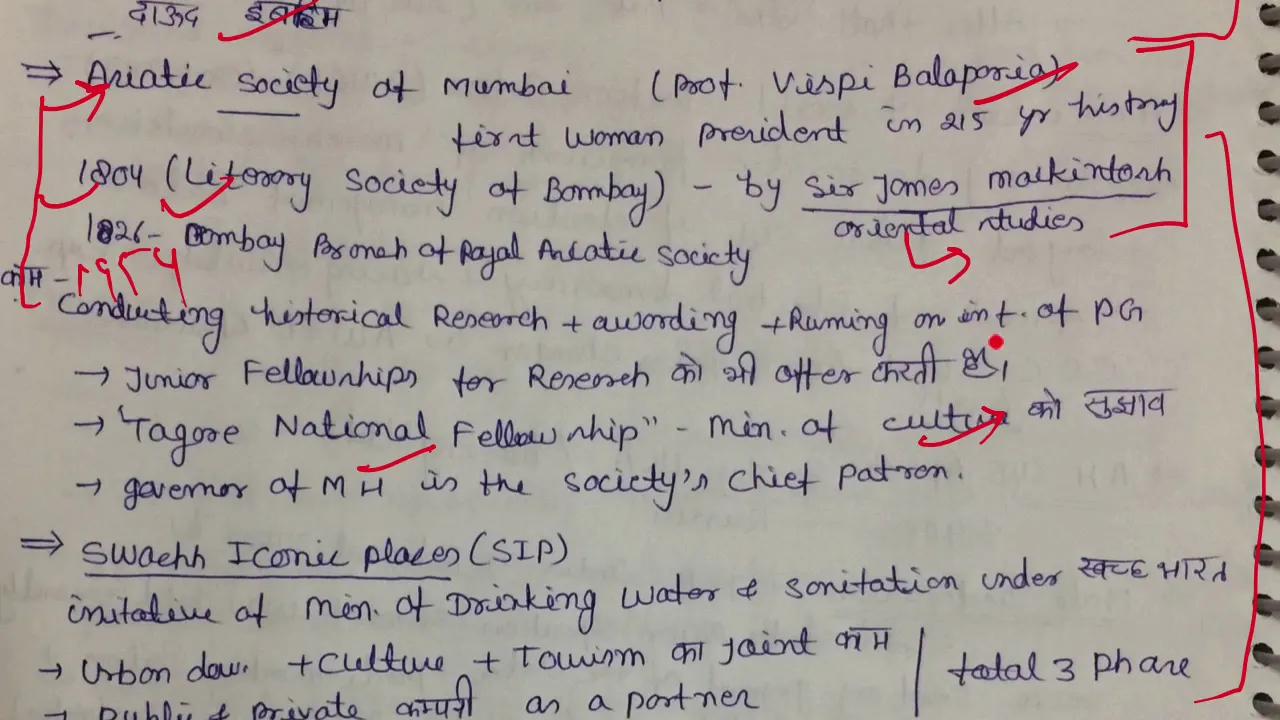 दाऊद इब्राहिम
⇒ Asiatic Society of Mumbai (Prof. Vispi Balaporia)
first woman president in 215 yr history
1804 (Literary Society of Bombay) - by Sir James mackintosh
oriental studies
1826 - Bombay Branch of Royal Asiatic Society
काम - 1954
Conducting historical Research + awarding + Running an int. of PG
→ Junior Fellowships for Research को भी offer करती है।
→ "Tagore National Fellowship" - min. of culture को सुझाव
→ governor of MH is the society's chief patron.
⇒ Swachh Iconic places (SIP)
initative of min. of Drinking water & sanitation under स्वच्छ भारत
→ Urban dev. + culture + Tourism का joint काम | total 3 phase
→ Public & private कम्पनी as a partner